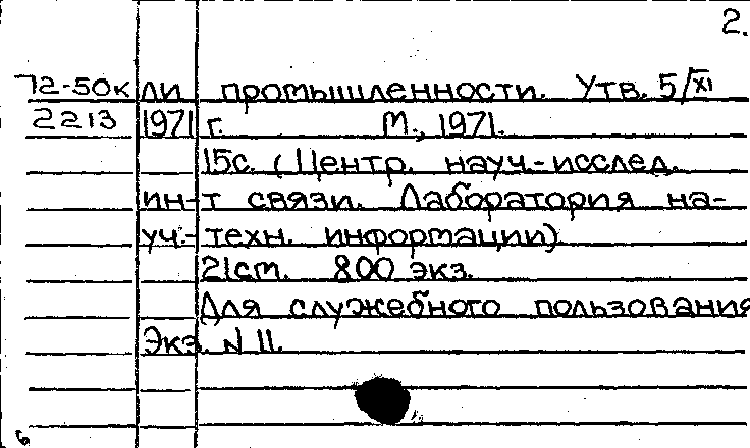 2.
72-50к ли промышленности. Утв. 5/XI
2213 1971 г. М., 1971.
15с. (Центр. науч.-исслед.
ин-т связи. Лаборатория на-
уч.-техн. информации)
21см. 800 экз.
Для служебного пользования
Экз. N 11.
6